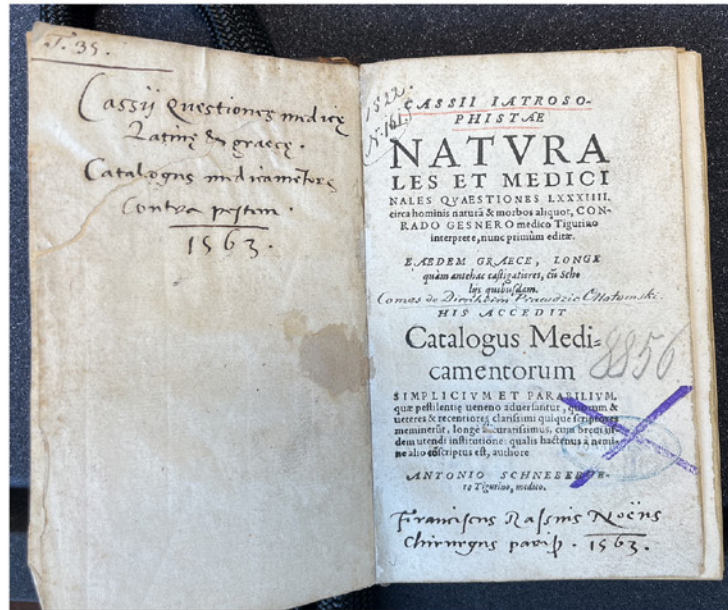 T. 35.
Cassij Questiones medicę
Latinę & graecę.
Catalogus medicamētorū
Contra pestem.
1563.
1522.
N. 161.
CASSII IATROSO-
PHISTAE
NATVRA
LES ET MEDICI
NALES QVAESTIONES LXXXIIII.
circa hominis naturā & morbos aliquot, CON-
RADO GESNERO medico Tigurino
interprete, nunc primùm editæ.
EAEDEM GRAECE, LONGE
quàm antehac castigatiores, cū Scho
lijs quibusdam.
Comes de
HIS ACCEDIT
Catalogus Medi-
camentorum
8856
SIMPLICIVM ET PARABILIVM,
quæ pestilentię veneno aduersantur, quorum &
ueteres & recentiores clarissimi quique scriptores
meminerūt, longè accuratissimus, cum breui ii-
dem utendi institutione: qualis hactenus à nemi-
ne alio cōscriptus est, authore
ANTONIO SCHNEBERGE-
ro Tigurino, medico.
Franciscus Rassius Noëns
Chirurgus parisi. 1563.